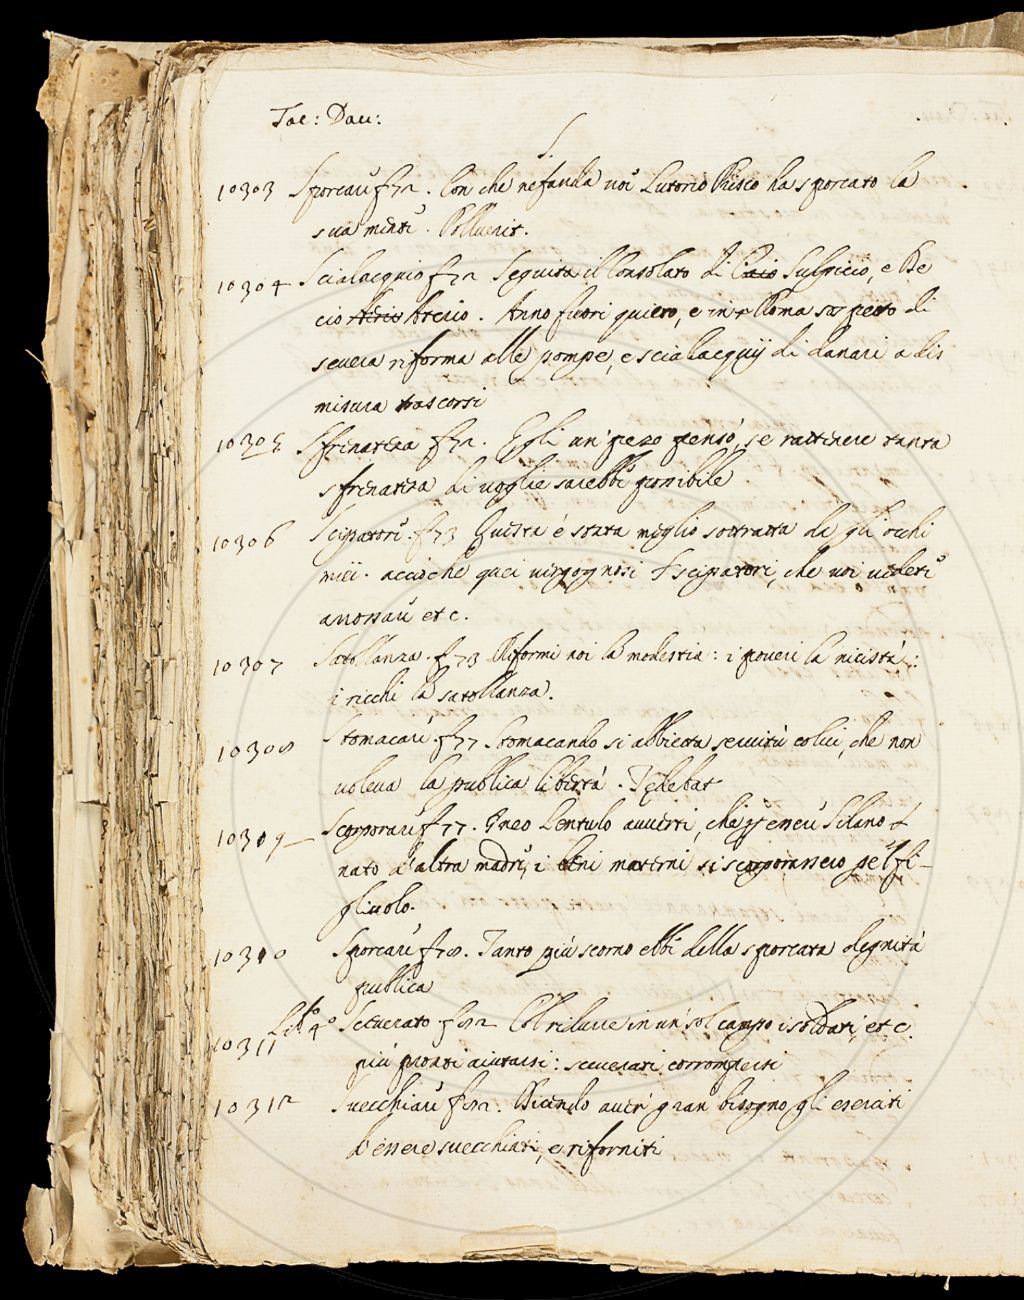 Tac: Dau:
S.
10303 Sporcare f 72. Con che nefanda voce Lutorio Prisco ha sporcato la
sua mente. Polluerit.
10304 Scialacquio f 72 Seguita il Consolato di Caio Sulpicio, e De
cio Aterio Aterio. Anno fuori quieto, e in Roma sospetto di
severa riforma alle pompe, e scialacquij di danari a dis
misura trascorsi
10305 Sfrenatezza f 72. Egli un pezo pensò, se rattenere tanta
sfrenateza di voglie sarebbe possibile
10306 Scipatore. f 73 Questa è stata meglio sottratta da gli occhi
miei. acciochè quei vergognosi scipatori, che voi vedete
amorsare etc.
10307 Satollanza. f 73 Riformi noi la modestia: i poveri la necistà:
i ricchi la satollanza.
10308 Stomacare f 77 Stomacando sì abbietta servitù colui, che non
voleva la publica libertà. Tędebat
10309 Scorporare f 77. Gneo Lentulo avvertì, che essere Silano
nato d'altra madre, i beni materni si scorporassero pe'l fi-
gliuolo.
10310 Sporcare f 78. Tanto più scorno ebbe della sporcata degnità
publica
Lib.º 4º
10311 Sceverato f 82 Col ridurre in un sol campo i soldati, etc.
più pronti aiutarsi: sceverati corrompersi
10312 Svecchiare f 82. Dicendo aver gran bisogno gli eserciti
d'essere svecchiati, e riforniti